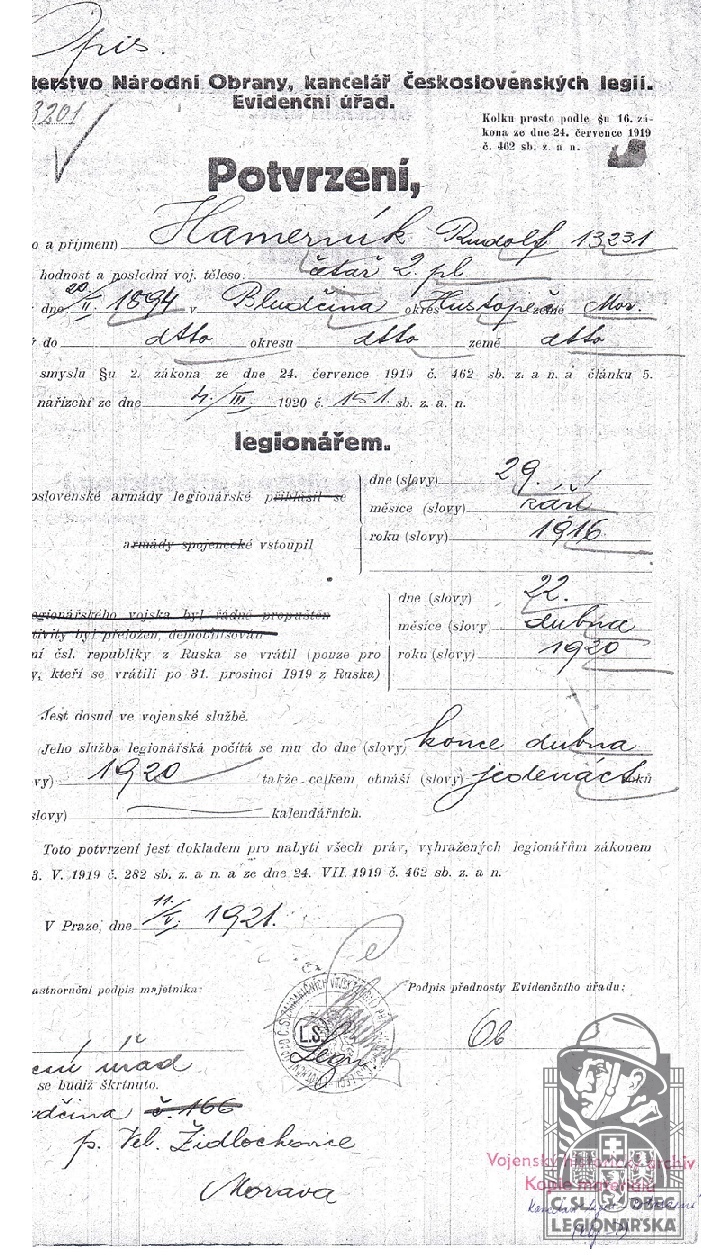 Opis.
terstvo Národní Obrany, kancelář Československých legií.
Evidenční úřad.
3201
Kolku prosto podle §u 16. zá-
kona ze dne 24. července 1919
č. 462 sb. z. a n.
Potvrzení,
o a příjmení) Hamerník Rudolf 13231
hodnost a poslední voj. těleso. četař 2. pl
dne 20/II. 1894 v Bludčina okres Hustopeč země Mor.
do dtto okresu dtto země dtto
smyslu §u 2. zákona ze dne 24. července 1919 č. 462 sb. z. a n. a článku 5.
nařízení ze dne 4./III. 1920 č. 151. sb. z. a. n.
legionářem.
dne (slovy) 29.
oslovenské armády legionářské přihlásil se
měsíce (slovy) září
armády spojenecké vstoupil
roku (slovy) 1916
dne (slovy) 22.
egionářského vojska byl řádně propuštěn
měsíce (slovy) dubna
tivity byl přeložen, demobilisován
ní čsl. republiky z Ruska se vrátil (pouze pro
roku (slovy) 1920
y, kteří se vrátili po 31. prosinci 1919 z Ruska)
Jest dosud ve vojenské službě.
Jeho služba legionářská počítá se mu do dne (slovy) konce dubna
vy) 1920 takže celkem obnáší (slovy) jedenáct roků
slovy) kalendářních.
Toto potvrzení jest dokladem pro nabytí všech práv, vyhražených legionářům zákonem
3. V. 1919 č. 282 sb. z. a n. a ze dne 24. VII. 1919 č. 462 sb. z. a n.
V Praze, dne 11/V. 1921.
astnoruční podpis majetníka:
Podpis přednosty Evidenčního úřadu:
L.S.
úřad
se budiž škrtnuto.
dčina č. 166
p. Vel. Židlochovice
Morava
Vojenský historický archiv
Kopie materiálu
ČSL. OBEC
LEGIONÁŘSKÁ